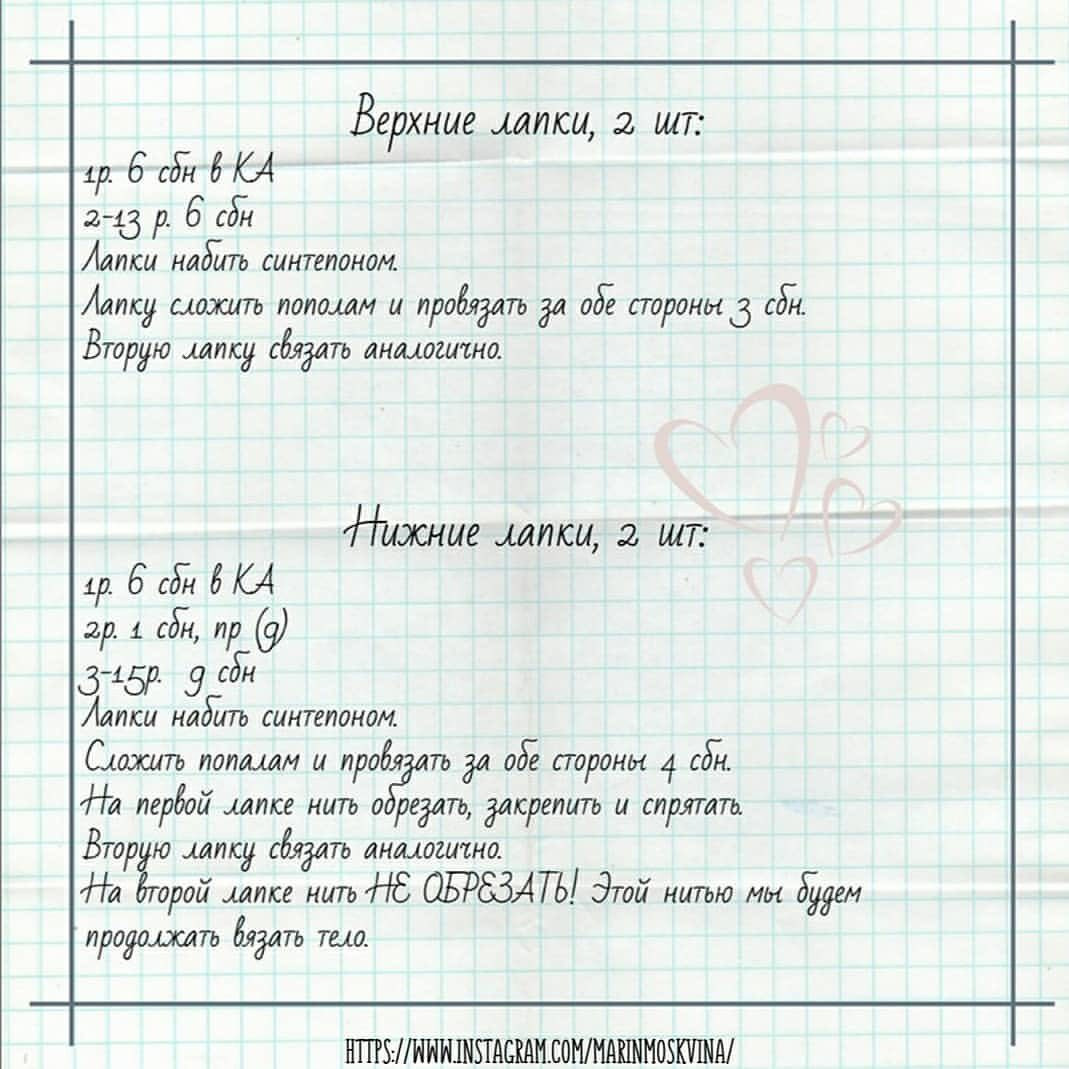 Верхние лапки, 2 шт:
1р. 6 сбн в КА
2-13 р. 6 сбн
Лапки набить синтепоном.
Лапку сложить пополам и провязать за обе стороны 3 сбн.
Вторую лапку связать аналогично.
Нижние лапки, 2 шт:
1р. 6 сбн в КА
2р. 1 сбн, пр (9)
3-15р. 9 сбн
Лапки набить синтепоном.
Сложить попалам и провязать за обе стороны 4 сбн.
На первой лапке нить обрезать, закрепить и спрятать.
Вторую лапку связать аналогично.
На второй лапке нить НЕ ОБРЕЗАТЬ! Этой нитью мы будем
продолжать вязать тело.
HTTPS://WWW.INSTAGRAM.COM/MARINMOSKVINA/